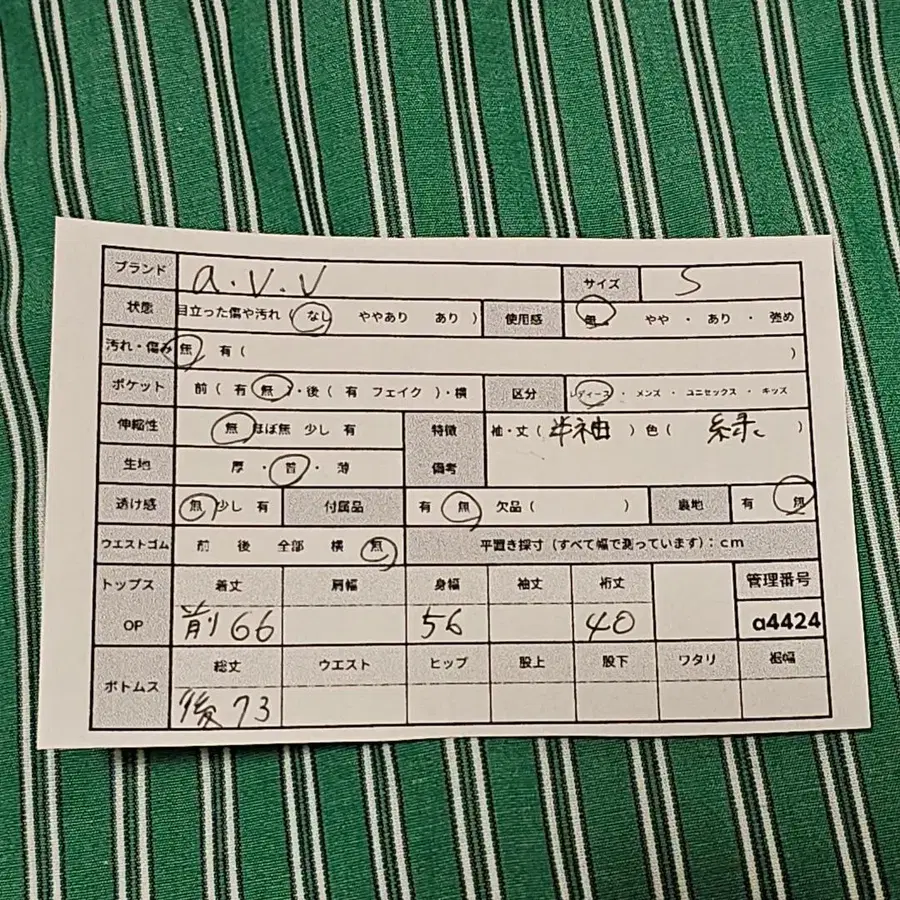 ブランド a.v.v サイズ S
状態 目立った傷や汚れ ( なし ややあり あり ) 使用感 無 ・ やや ・ あり ・ 強め
汚れ・傷み 無 有 ( )
ポケット 前 ( 有 無 ) ・後 ( 有 フェイク ) ・横 区分 レディース ・ メンズ ・ ユニセックス ・ キッズ
伸縮性 無 ほぼ無 少し 有 特徴 袖・丈 ( 半袖 ) 色 ( 緑 )
生地 厚 ・ 普 ・ 薄 備考
透け感 無 少し 有 付属品 有 無 欠品 ( ) 裏地 有 無
ウエストゴム 前 後 全部 横 無 平置き採寸 (すべて幅で測っています) : cm
トップス 着丈 肩幅 身幅 袖丈 裄丈 管理番号
OP 前66 56 40 a4424
ボトムス 総丈 ウエスト ヒップ 股上 股下 ワタリ 裾幅
後73